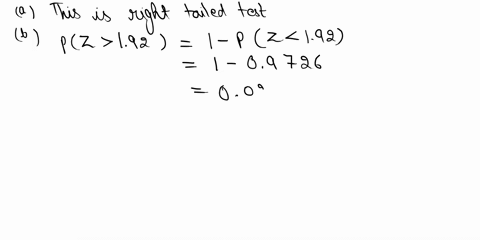 (a) This is right tailed test
(b) P(Z > 1.92) = 1 - P(Z < 1.92)
= 1 - 0.9726
= 0.0